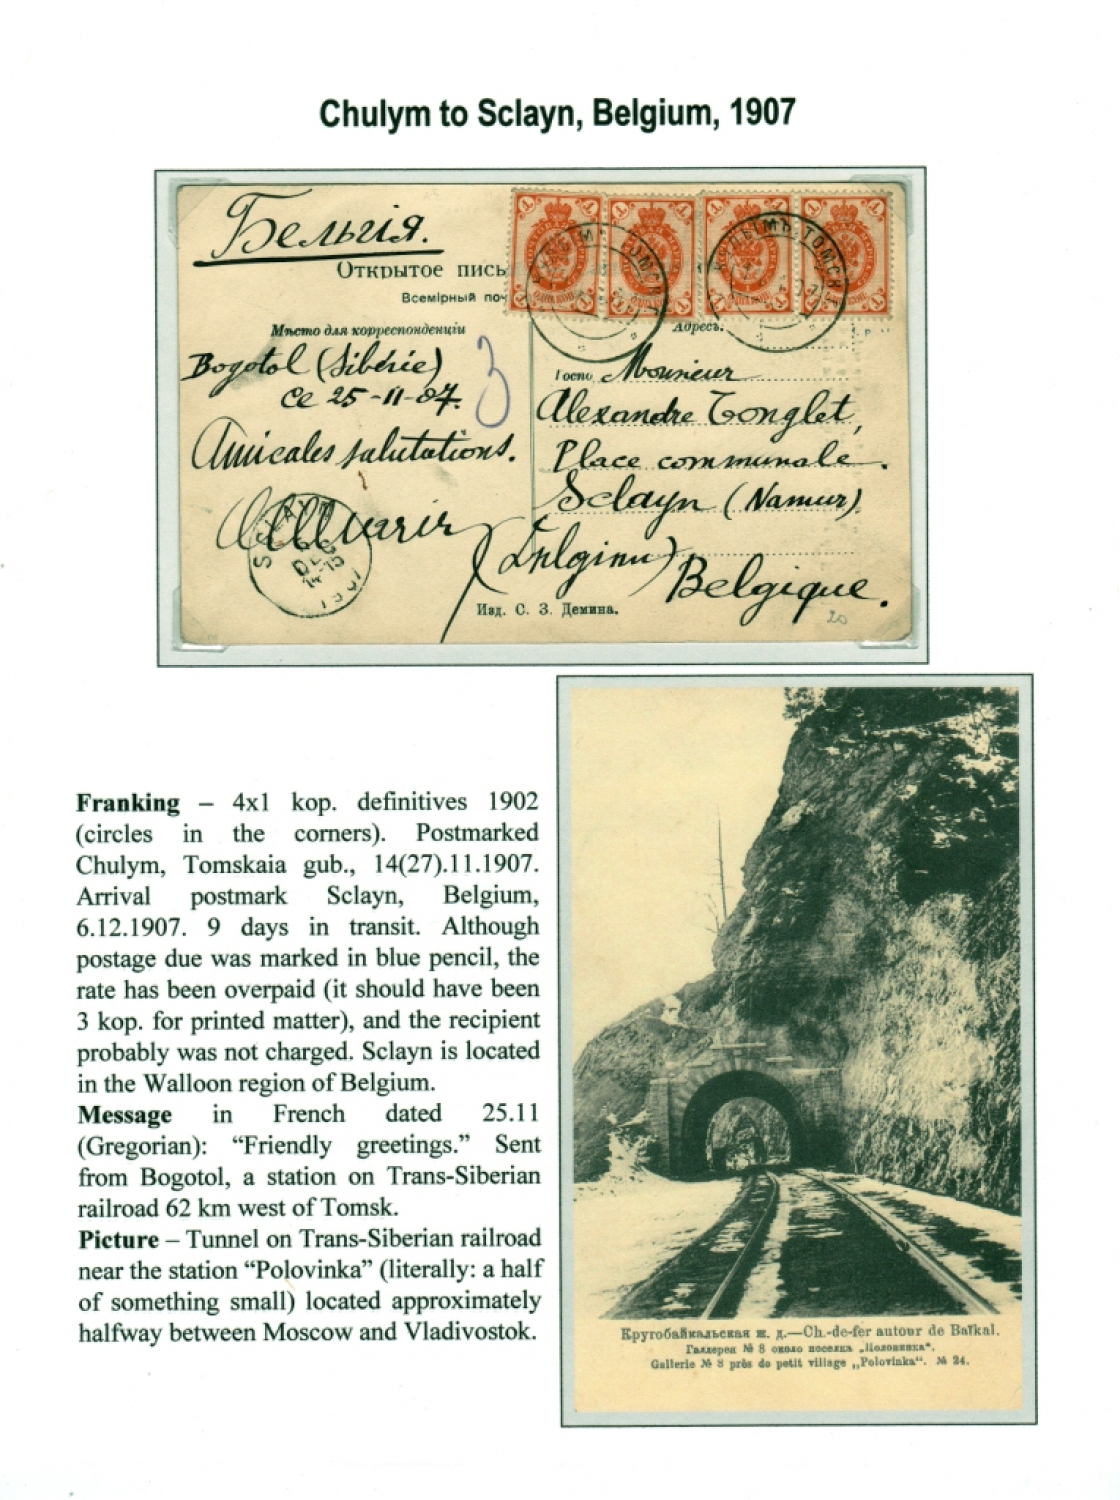 Chulym to Sclayn, Belgium, 1907
Бельгія.
Открытое пись
Всемірный поч
Мѣсто для корреспонденціи
Адресъ.
Bogotol (Sibérie)
ce 25-11-07.
Amicales salutations.
3
Госпо Monsieur
Alexandre Tonglet,
Place communale.
Sclayn (Namur)
Belgique.
ЧУЛЫМЪ ТОМСК. Г.
SCLAYN
6
DEC
14-15
1907
Изд. С. З. Демина.
20
Franking – 4x1 kop. definitives 1902
(circles in the corners). Postmarked
Chulym, Tomskaia gub., 14(27).11.1907.
Arrival postmark Sclayn, Belgium,
6.12.1907. 9 days in transit. Although
postage due was marked in blue pencil, the
rate has been overpaid (it should have been
3 kop. for printed matter), and the recipient
probably was not charged. Sclayn is located
in the Walloon region of Belgium.
Message in French dated 25.11
(Gregorian): “Friendly greetings.” Sent
from Bogotol, a station on Trans-Siberian
railroad 62 km west of Tomsk.
Picture – Tunnel on Trans-Siberian railroad
near the station “Polovinka” (literally: a half
of something small) located approximately
halfway between Moscow and Vladivostok.
Кругобайкальская ж. д.—Ch.-de-fer autour de Baïkal.
Галлерея № 8 около поселка „Половинка“.
Gallerie № 8 près de petit village „Polovinka“. № 24.